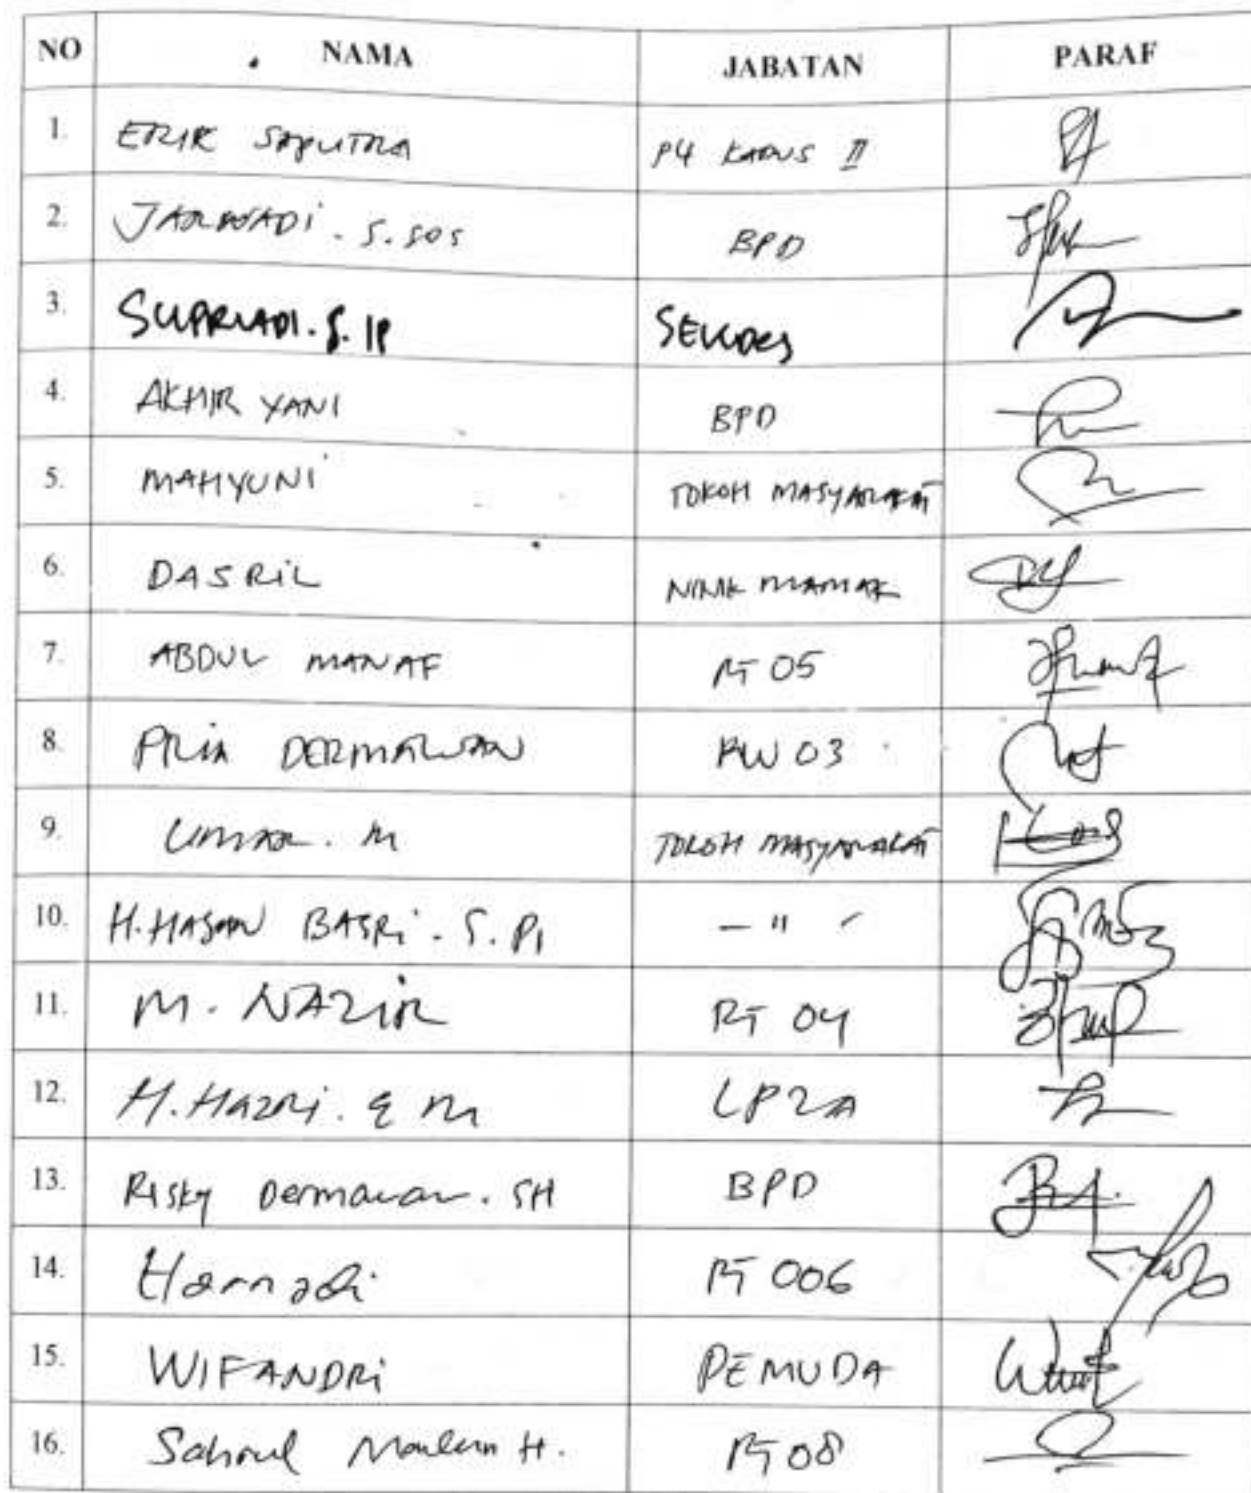 NO NAMA JABATAN PARAF
1. ERIK SAPUTRA P4 KADUS II
2. JARWADI . S. SOS BPD
3. SUPRIADI. S. IP SEKDES
4. AKHIR YANI BPD
5. MAHYUNI TOKOH MASYARAKAT
6. DASRIL NINIK MAMAK
7. ABDUL MANAF RT 05
8. PRIA DERMAWAN RW 03
9. UMAR. M TOKOH MASYARAKAT
10. H. HASAN BASRI . S. Pi - " -
11. M. NAZIR RT 04
12. H. Hazri. E M LP2A
13. Risky Dermawan. SH BPD
14. Harnadi RT 006
15. WIFANDRI PEMUDA
16. H. RT 08